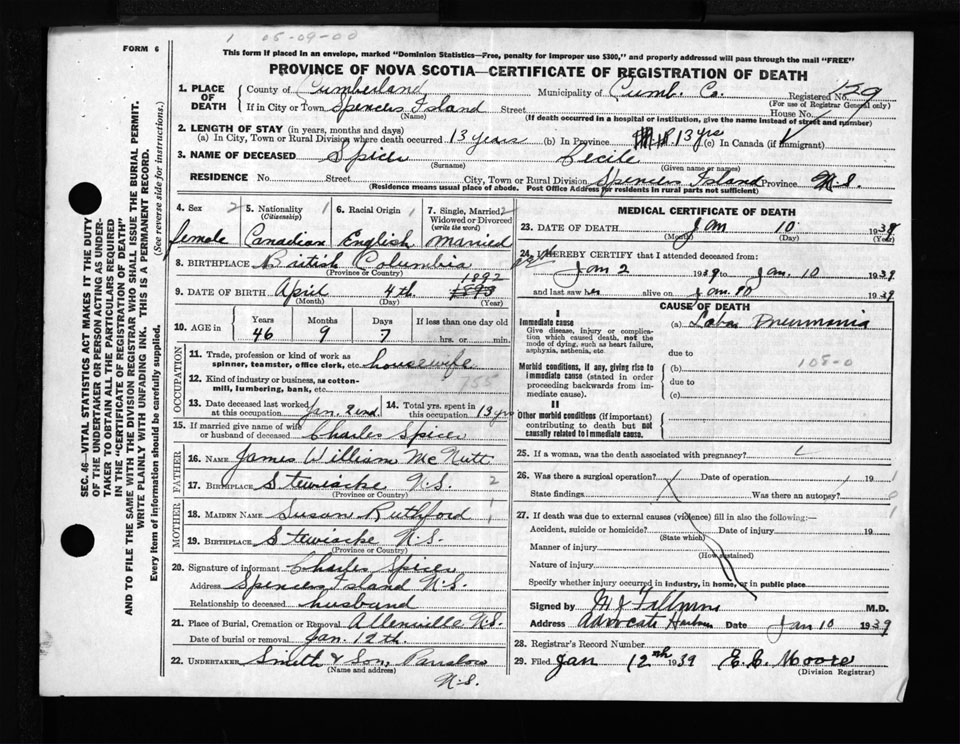 1 05-09-00
FORM 6
This form if placed in an envelope, marked "Dominion Statistics—Free, penalty for improper use $300," and properly addressed will pass through the mail "FREE"
PROVINCE OF NOVA SCOTIA—CERTIFICATE OF REGISTRATION OF DEATH
1. PLACE OF DEATH County of Cumberland Municipality of Cumb. Co. Registered No. 129
(For use of Registrar General only)
If in City or Town Spencers Island Street House No.
(Name) (If death occurred in a hospital or institution, give the name instead of street and number)
2. LENGTH OF STAY (in years, months and days)
(a) In City, Town or Rural Division where death occurred 13 years (b) In Province 13 yrs (c) In Canada (if immigrant)
3. NAME OF DECEASED Spicer Cecile
(Surname) (Given name or names)
RESIDENCE No. Street City, Town or Rural Division Spencers Island Province N.S.
(Residence means usual place of abode. Post Office Address for residents in rural parts not sufficient)
4. Sex 2 5. Nationality 1 6. Racial Origin 1 7. Single, Married 2
(Citizenship) Widowed or Divorced
(write the word)
female Canadian English married
8. BIRTHPLACE British Columbia
(Province or Country)
1892
9. DATE OF BIRTH April 4th 1893
(Month) (Day) (Year)
10. AGE in Years Months Days If less than one day old
46 9 7 hrs. or min.
OCCUPATION
11. Trade, profession or kind of work as
spinner, teamster, office clerk, etc. housewife
12. Kind of industry or business, as cotton- 755
mill, lumbering, bank, etc.
13. Date deceased last worked at this occupation Jan. 2nd 14. Total yrs. spent in this occupation 13 yrs
15. If married give name of wife
or husband of deceased Charles Spicer
FATHER
16. Name James William McNutt
17. Birthplace Stewiacke N.S. 2
(Province or Country)
MOTHER
18. Maiden Name Susan Ruthford 1
19. Birthplace Stewiacke N.S.
(Province or Country)
20. Signature of informant Charles Spicer
Address Spencers Island N.S.
Relationship to deceased husband
21. Place of Burial, Cremation or Removal Allenville N.S.
Date of burial or removal Jan. 12th.
22. Undertaker Smith & Son, Parrsboro
(Name and address)
N.S.
MEDICAL CERTIFICATE OF DEATH
23. DATE OF DEATH Jan 10 1938
(Month) (Day) (Year)
24. I HEREBY CERTIFY that I attended deceased from:
Jan 2 1939 to Jan. 10 1939
and last saw her alive on Jan. 10 1939
CAUSE OF DEATH
I
Immediate cause (a) Lobar Pneumonia
Give disease, injury or complication which caused death, not the mode of dying, such as heart failure, asphyxia, asthenia, etc.
due to
108-0
Morbid conditions, if any, giving rise to immediate cause (stated in order proceeding backwards from immediate cause). (b)
due to
(c)
II
Other morbid conditions (if important) contributing to death but not causally related to immediate cause.
25. If a woman, was the death associated with pregnancy?
26. Was there a surgical operation? Date of operation 19
State findings Was there an autopsy?
27. If death was due to external causes (violence) fill in also the following:—
Accident, suicide or homicide? Date of injury 19
(State which)
Manner of injury
(How sustained)
Nature of injury
Specify whether injury occurred in industry, in home, or in public place
Signed by M.D.
Address Advocate Harbour Date Jan 10 1939
28. Registrar's Record Number
29. Filed Jan 12th 1939 E. L. Moore
(Division Registrar)
SEC. 46—VITAL STATISTICS ACT MAKES IT THE DUTY
OF THE UNDERTAKER OR PERSON ACTING AS UNDER-
TAKER TO OBTAIN ALL THE PARTICULARS REQUIRED
IN THE "CERTIFICATE OF REGISTRATION OF DEATH"
AND TO FILE THE SAME WITH THE DIVISION REGISTRAR WHO SHALL ISSUE THE BURIAL PERMIT.
WRITE PLAINLY WITH UNFADING INK. THIS IS A PERMANENT RECORD.
Every item of information should be carefully supplied. (See reverse side for instructions.)